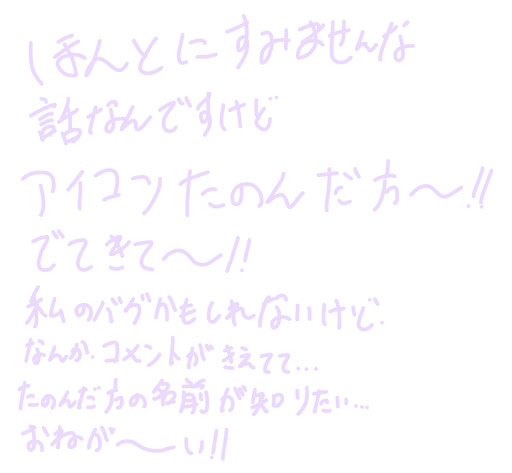 ほんとにすみませんな
話なんですけど
アイコンたのんだ方〜!!
でてきて〜!!
私のバグかもしれないけど.
なんか.コメントがきえてて...
たのんだ方の名前が知りたい...
おねが〜い!!